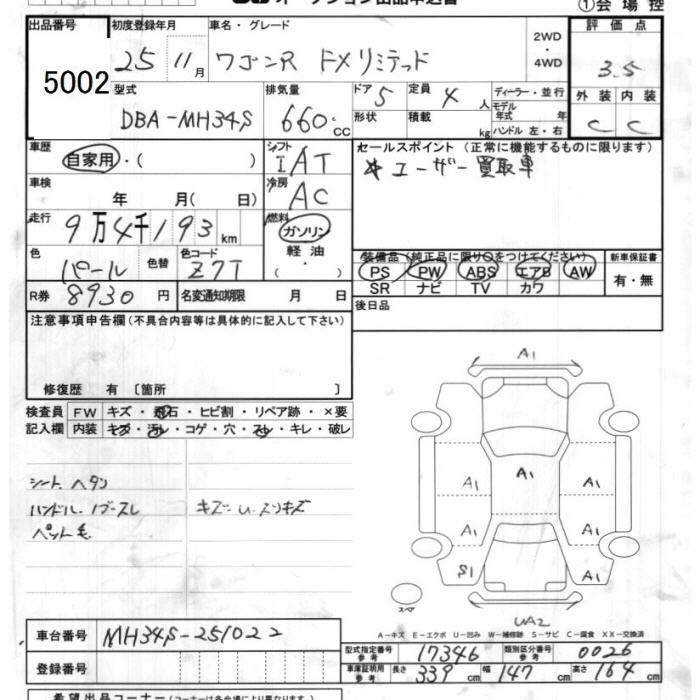 オークション出品申込書
①会場控
出品番号 初度登録年月 車名・グレード 2WD・4WD 評価点
5002 25 11月 ワゴンR FXリミテッド 3.5
型式 排気量 ドア 5 定員 4人 ディーラー・並行 外装 内装
DBA-MH34S 660cc 形状 積載 kg モデル年式 年 ハンドル 左・右 C C
車歴 自家用・( ) シフト IAT セールスポイント (正常に機能するものに限ります)
ユーザー買取車
車検 年 月 ( 日) 冷房 AC
走行 9万4千193km 燃料 ガソリン 軽油 ・ ( )
色 パール 色替 色コード Z7T 装備品(純正品に限り○をつけてください) 新車保証書
PS PW ABS エアB AW 有・無
SR ナビ TV カワ
R券 8930円 名変通知期限 月 日 後日品
注意事項申告欄(不具合内容等は具体的に記入して下さい)
修復歴 有 〔箇所 〕
検査員 FW キズ・飛石・ヒビ割・リペア跡・×要
記入欄 内装 キズ・汚レ・コゲ・穴・スレ・キレ・破レ
シートヘタリ
ハンドル、ノブスレ キズ
ペット毛
A1
A1
A1 A1
A1 A1
S1 A1
スペア
UA2
A-キズ E-エクボ U-凹み W-補修跡 S-サビ C-腐食 XX-交換済
車台番号 MH34S-251022
型式指定番号参考 17346 類別区分番号参考 0026
登録番号
車庫証明用参考 長さ 339cm 幅 147cm 高さ 164cm
希望出品コーナー(コーナーは各会場により異なります)